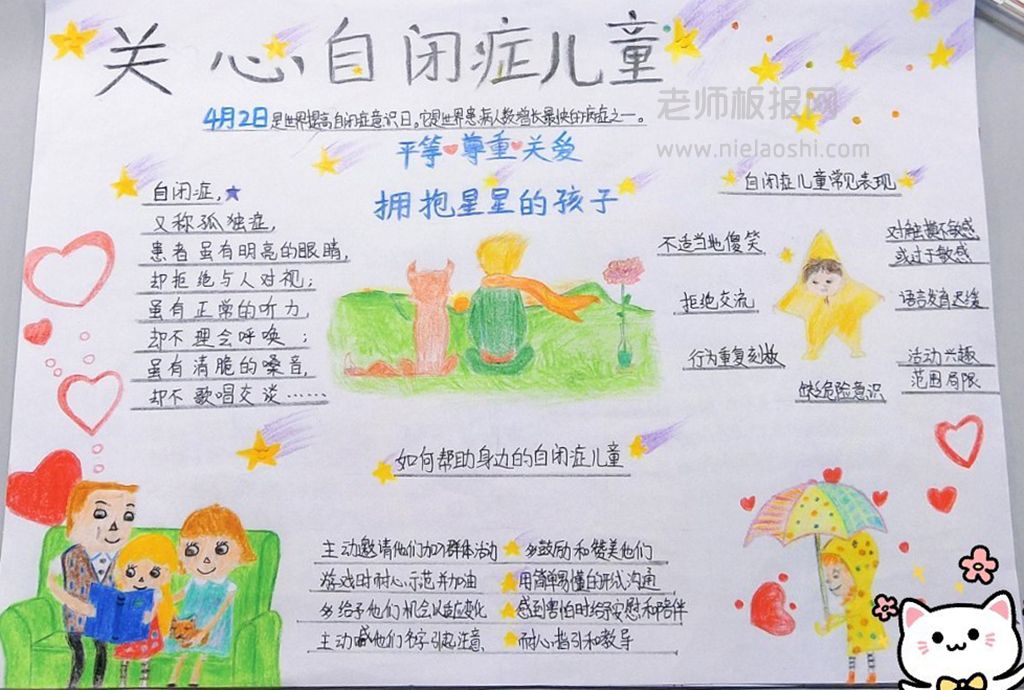 关心自闭症儿童
4月2日是世界提高自闭症意识日。它是世界患病人数增长最快的病症之一。
老师板报网
www.nielaoshi.com
平等尊重关爱
拥抱星星的孩子
自闭症,
又称孤独症,
患者虽有明亮的眼睛,
却拒绝与人对视;
虽有正常的听力,
却不理会呼唤;
虽有清脆的嗓音,
却不歌唱交谈……
自闭症儿童常见表现
不适当地傻笑
对触摸不敏感
或过于敏感
拒绝交流
语言发育迟缓
行为重复刻板
活动兴趣
范围局限
缺乏危险意识
如何帮助身边的自闭症儿童
主动邀请他们加入群体活动
多鼓励和赞美他们
游戏时耐心示范并加油
用简单易懂的形式沟通
多给予他们机会以适应变化
感到害怕时给予安慰和陪伴
主动喊他们名字引起注意
耐心指引和教导